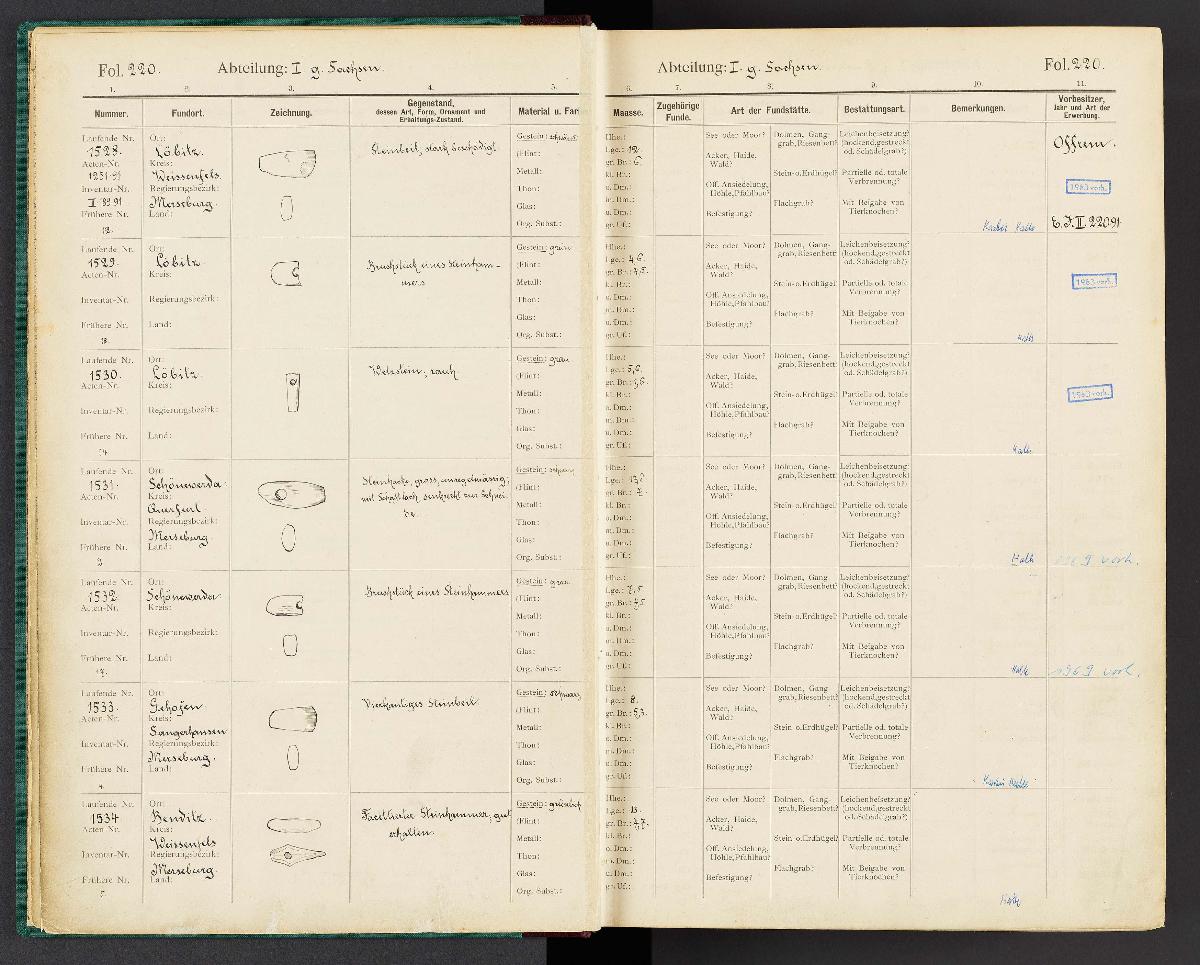 Fol. 220. Abteilung: I g. Sachsen.
1. 2. 3. 4. 5.
Nummer. Fundort. Zeichnung. Gegenstand, dessen Art, Form, Ornament und Erhaltungs-Zustand. Material u. Far
Laufende Nr. Ort: Gestein: schwarz
1528. Löbitz. Steinbeil, stark beschädigt
Acten-Nr. Kreis: (Flint:
1251.91 Weissenfels. Metall:
Inventar-Nr. Regierungsbezirk: Thon:
II. Merseburg. Glas:
Frühere Nr. Land: Org. Subst.:
12.
Laufende Nr. Ort: Gestein: grau
1529. Löbitz Bruchstück eines Steinham-
Acten-Nr. Kreis: (Flint:
mers
Metall:
Inventar-Nr. Regierungsbezirk: Thon:
Glas:
Frühere Nr. Land: Org. Subst.:
Laufende Nr. Ort: Gestein: grau
1530. Löbitz Wetzstein, rauh
Acten-Nr. Kreis: (Flint:
Metall:
Inventar-Nr. Regierungsbezirk: Thon:
Glas:
Frühere Nr. Land: Org. Subst.:
Laufende Nr. Ort: Gestein: schwarz
1531. Schönewerda Steinhacke, gross, unregelmässig,
Acten-Nr. Kreis: mit Schaftloch senkrecht zur Schnei- (Flint:
Querfurt de.
Metall:
Inventar-Nr. Regierungsbezirk: Thon:
Merseburg. Glas:
Frühere Nr. Land: Org. Subst.:
Laufende Nr. Ort: Gestein: grau
1532 Schönewerda Bruchstück eines Steinhammers
Acten-Nr. Kreis: (Flint:
Metall:
Inventar-Nr. Regierungsbezirk: Thon:
Glas:
Frühere Nr. Land: Org. Subst.:
Laufende Nr. Ort: Gestein: schwarz
1533. Gehofen Vierkantiges Steinbeil
Acten-Nr. Kreis: (Flint:
Sangerhausen Metall:
Inventar-Nr. Regierungsbezirk: Thon:
Merseburg. Glas:
Frühere Nr. Land: Org. Subst.:
4.
Laufende Nr. Ort: Gestein: grünlich
1534 Benditz. Facettierter Steinhammer, gut
Acten-Nr. Kreis: erhalten. (Flint:
Weissenfels Metall:
Inventar-Nr. Regierungsbezirk: Thon:
Merseburg. Glas:
Frühere Nr. Land: Org. Subst.:
5.
Abteilung: I. g. Sachsen. Fol. 220.
6. 7. 8. 9. 10. 11.
Maasse. Zugehörige Funde. Art der Fundstätte. Bestattungsart. Bemerkungen. Vorbesitzer, Jahr und Art der Erwerbung.
Hhe.: See oder Moor? Dolmen, Gang- Leichenbeisetzung?
Lge.: 12. grab, Riesenbett? (hockend, gestreckt
gr. Br.: 6. Acker, Haide, od. Schädelgrab?)
kl. Br.: Wald? Stein- o. Erdhügel? Partielle od. totale
o. Dm.: Off. Ansiedelung, Verbrennung?
m. Dm.: Höhle, Pfahlbau? Flachgrab? Mit Beigabe von
u. Dm.: Befestigung? Tierknochen?
gr. Uf.:
1983 vorh.
E. J. II. 220.91
Hhe.: See oder Moor? Dolmen, Gang- Leichenbeisetzung?
Lge.: 4,6. grab, Riesenbett? (hockend, gestreckt
gr. Br.: 4,5. Acker, Haide, od. Schädelgrab?)
kl. Br.: Wald? Stein- o. Erdhügel? Partielle od. totale
o. Dm.: Off. Ansiedelung, Verbrennung?
m. Dm.: Höhle, Pfahlbau? Flachgrab? Mit Beigabe von
u. Dm.: Befestigung? Tierknochen?
gr. Uf.:
1983 vorh.
Hhe.: See oder Moor? Dolmen, Gang- Leichenbeisetzung?
Lge.: 5,6. grab, Riesenbett? (hockend, gestreckt
gr. Br.: Acker, Haide, od. Schädelgrab?)
kl. Br.: Wald? Stein- o. Erdhügel? Partielle od. totale
o. Dm.: Off. Ansiedelung, Verbrennung?
m. Dm.: Höhle, Pfahlbau? Flachgrab? Mit Beigabe von
u. Dm.: Befestigung? Tierknochen?
gr. Uf.:
1983 vorh.
Hhe.: See oder Moor? Dolmen, Gang- Leichenbeisetzung?
Lge.: grab, Riesenbett? (hockend, gestreckt
gr. Br.: 7. Acker, Haide, od. Schädelgrab?)
kl. Br.: Wald? Stein- o. Erdhügel? Partielle od. totale
o. Dm.: Off. Ansiedelung, Verbrennung?
m. Dm.: Höhle, Pfahlbau? Flachgrab? Mit Beigabe von
u. Dm.: Befestigung? Tierknochen?
gr. Uf.:
1969 vorh.
Hhe.: See oder Moor? Dolmen, Gang- Leichenbeisetzung?
Lge.: 7,5 grab, Riesenbett? (hockend, gestreckt
gr. Br.: 4,5 Acker, Haide, od. Schädelgrab?)
kl. Br.: Wald? Stein- o. Erdhügel? Partielle od. totale
o. Dm.: Off. Ansiedelung, Verbrennung?
m. Dm.: Höhle, Pfahlbau? Flachgrab? Mit Beigabe von
u. Dm.: Befestigung? Tierknochen?
gr. Uf.:
1969 vorh.
Hhe.: See oder Moor? Dolmen, Gang- Leichenbeisetzung?
Lge.: 8. grab, Riesenbett? (hockend, gestreckt
gr. Br.: 5,3. Acker, Haide, od. Schädelgrab?)
kl. Br.: Wald? Stein- o. Erdhügel? Partielle od. totale
o. Dm.: Off. Ansiedelung, Verbrennung?
m. Dm.: Höhle, Pfahlbau? Flachgrab? Mit Beigabe von
u. Dm.: Befestigung? Tierknochen?
gr. Uf.:
Hhe.: See oder Moor? Dolmen, Gang- Leichenbeisetzung?
Lge.: 13. grab, Riesenbett? (hockend, gestreckt
gr. Br.: Acker, Haide, od. Schädelgrab?)
kl. Br.: Wald? Stein- o. Erdhügel? Partielle od. totale
o. Dm.: Off. Ansiedelung, Verbrennung?
m. Dm.: Höhle, Pfahlbau? Flachgrab? Mit Beigabe von
u. Dm.: Befestigung? Tierknochen?
gr. Uf.: